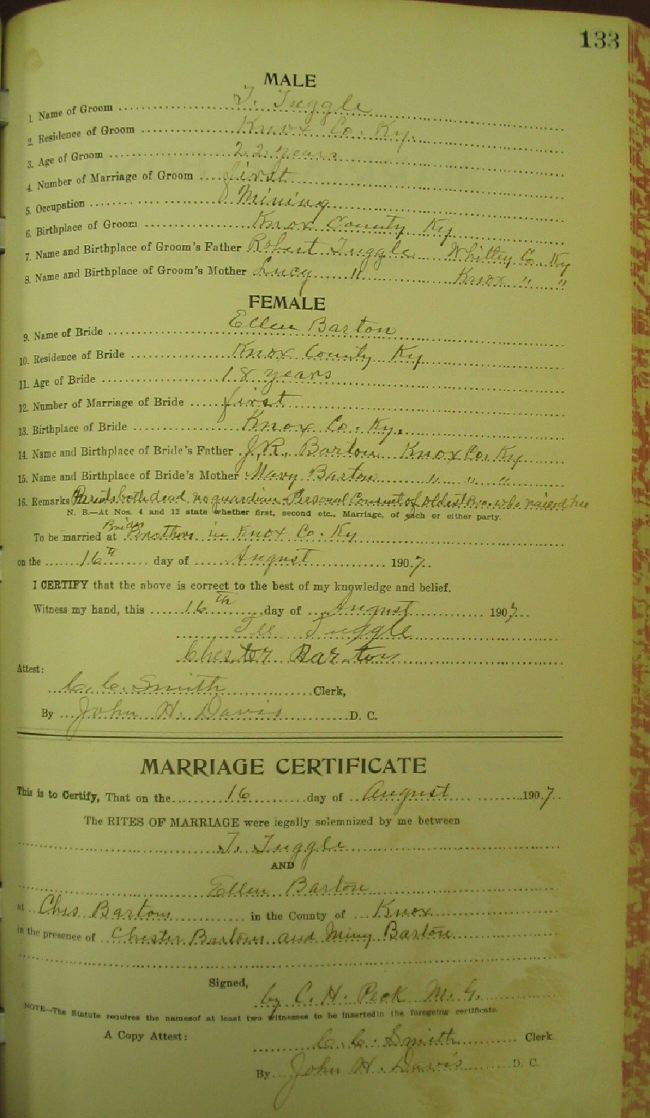 133
MALE
1. Name of Groom T. Tuggle
2. Residence of Groom Knox Co. Ky.
3. Age of Groom 22 years
4. Number of Marriage of Groom first
5. Occupation Mining
6. Birthplace of Groom Knox County Ky
7. Name and Birthplace of Groom's Father Robert Tuggle Whitley Co. Ky
8. Name and Birthplace of Groom's Mother Lucy " Knox " "
FEMALE
9. Name of Bride Ellen Barton
10. Residence of Bride Knox County Ky
11. Age of Bride 18 years
12. Number of Marriage of Bride first
13. Birthplace of Bride Knox Co. Ky.
14. Name and Birthplace of Bride's Father J.R. Barton Knox Co. Ky
15. Name and Birthplace of Bride's Mother Mary Barton " " "
16. Remarks both dead no guardian Personal Consent of oldest Bro. who raised her
N. B.—At Nos. 4 and 12 state whether first, second etc., Marriage, of each or either party.
To be married at Brides Brothers in Knox Co. Ky
on the 16th day of August 1907.
I CERTIFY that the above is correct to the best of my knowledge and belief.
Witness my hand, this 16th day of August 1907
Tee Tuggle
Chester Barton
Attest:
C. C. Smith Clerk,
By John H. Davis D. C.
MARRIAGE CERTIFICATE
This is to Certify, That on the 16 day of August 1907
The RITES OF MARRIAGE were legally solemnized by me between
T. Tuggle
AND
Ellen Barton
at Ches. Bartons in the County of Knox
in the presence of Chester Barton and Barton
Signed,
by C. H. Peak M. G.
NOTE—The Statute requires the namesof at least two witnesses to be insertedin the foregoing certificate.
A Copy Attest: C. C. Smith Clerk
By John H. Davis D. C.